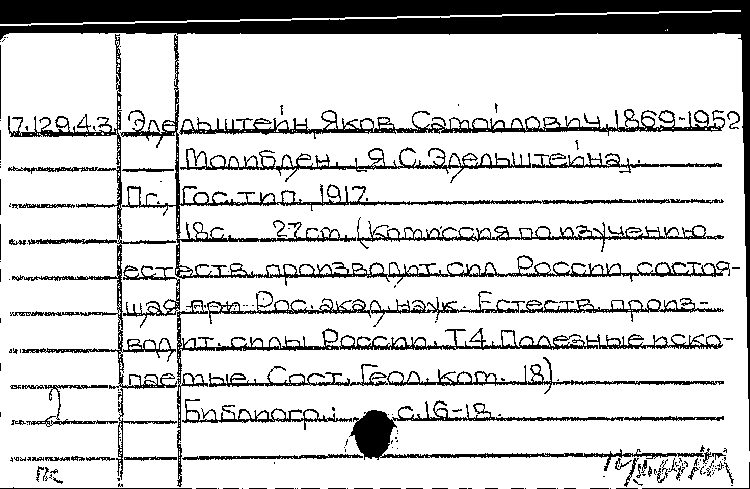 17.129.4.3 Эдельштейн, Яков Самойлович, 1869-1952
Молибден. [Я.С. Эдельштейна].
Пг., Гос. тип., 1917.
18с. 27см. (Комиссия по изучению
естеств. производит. сил России, состоя-
щая при Рос. акад. наук. Естеств. произ-
водит. силы России. Т.4. Полезные иско-
паемые. Сост. Геол. ком. 18)
2 Библиогр.: с.16-18.